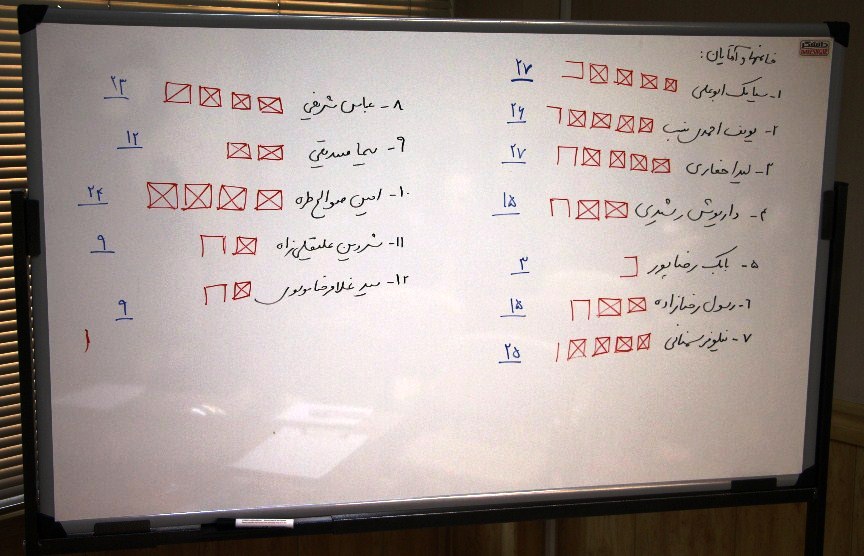 خانمها و آقایان:
۱- سیامک ابوعلی ۲۷
۲- یوسف احمدی نسب ۲۶
۳- لیدا حفاری ۲۷
۴- داریوش رشیدی ۱۵
۵- بابک رضاپور ۳
۶- رسول رضازاده ۱۵
۷- نیلوفر سمنانی ۲۵
۸- عباس شرفی ۲۳
۹- سیما صدیقی ۱۲
۱۰- امین صوالح طره ۲۴
۱۱- شروین علیقلی زاده ۹
۱۲- سید غلامرضا موسوی ۹
دانشگر